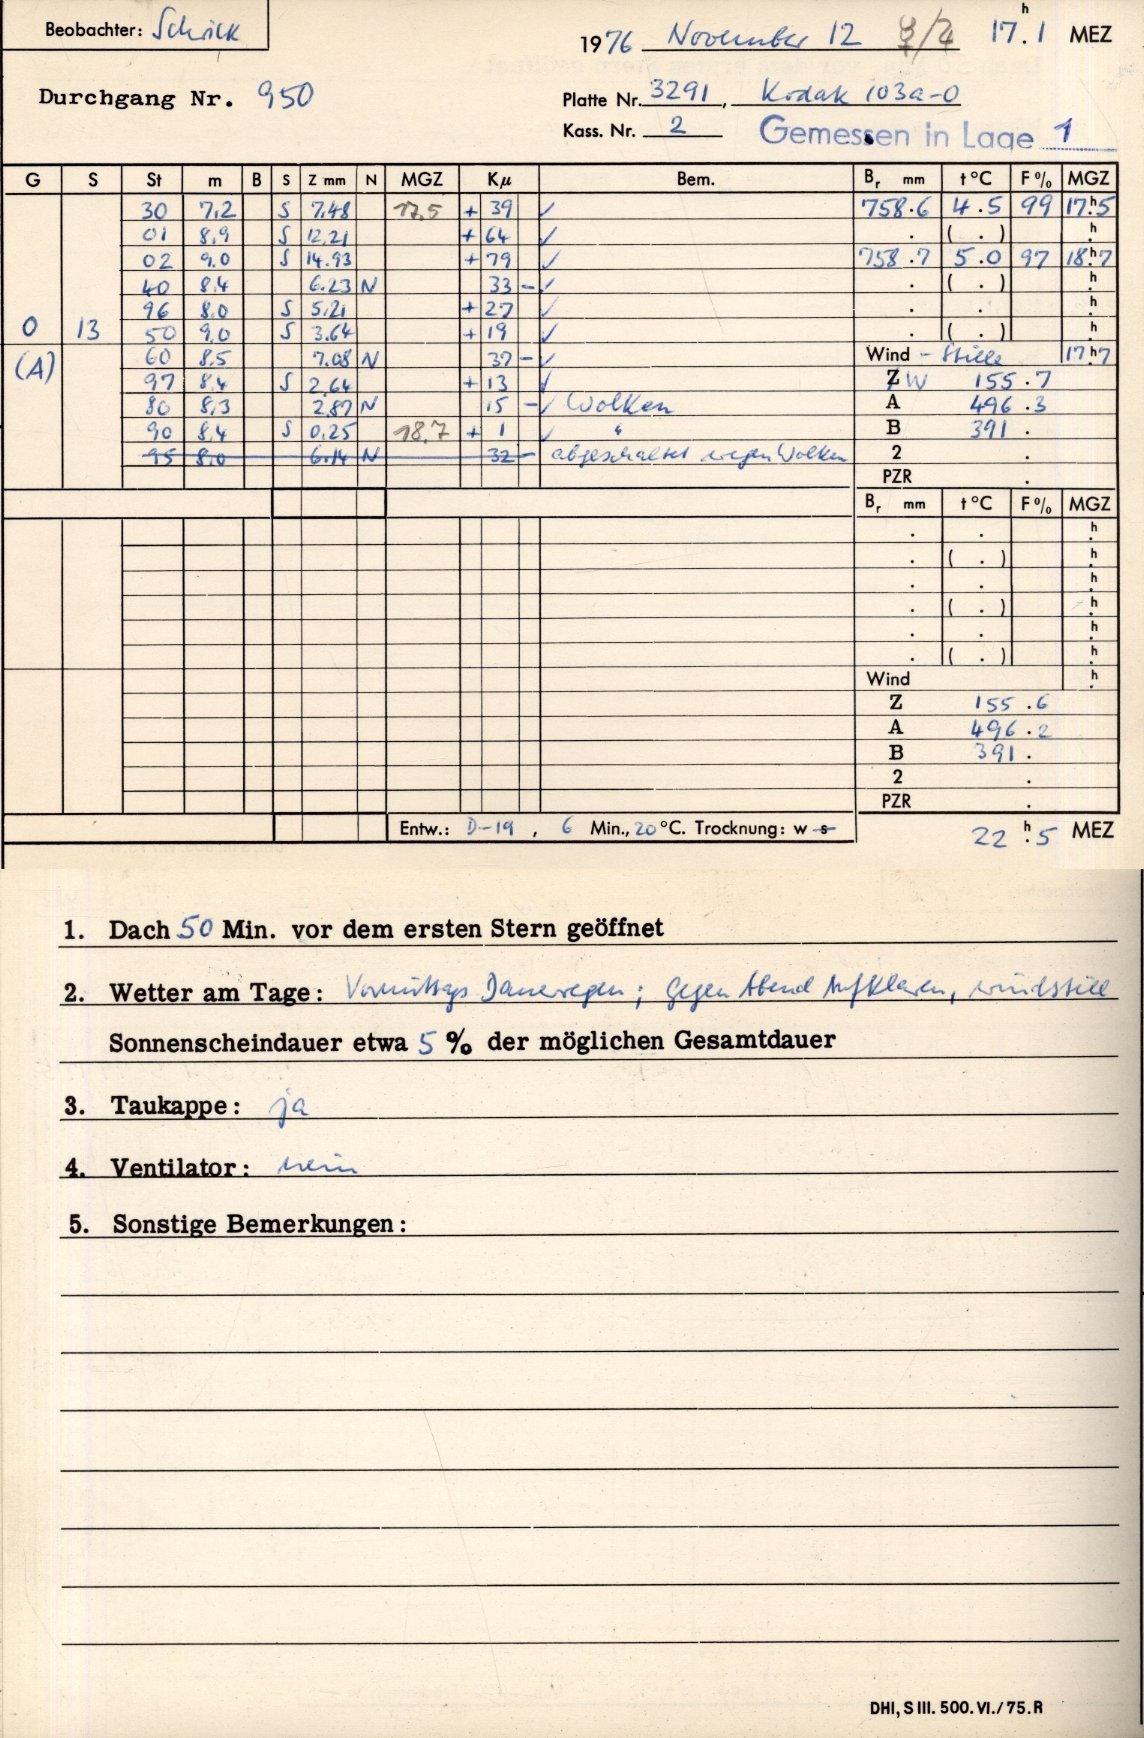 Beobachter: Schrick
1976 November 12 ♀/♃ 17.ʰ1 MEZ
Durchgang Nr. 950
Platte Nr. 3291, Kodak 103a-O
Kass. Nr. 2 Gemessen in Lage 1
G S St m B S Z mm N MGZ Kμ Bem. Bᵣ mm t °C F % MGZ
30 7.2 S 7.48 17.5 + 39 ✓ 758.6 4.5 99 17.ʰ5
01 8.9 S 12.21 + 64 ✓ . ( . ) .ʰ
02 9.0 S 14.93 + 79 ✓ 758.7 5.0 97 18.ʰ7
40 8.4 6.23 N 33 – ✓ . ( . ) .ʰ
96 8.0 S 5.21 + 27 ✓ . . .ʰ
0 13 50 9.0 S 3.64 + 19 ✓ . ( . ) .ʰ
(A) 60 8.5 7.08 N 37 – ✓ Wind – Stille 17.ʰ7
97 8.4 S 2.64 + 13 ✓ Z W 155.7
80 8.3 2.87 N 15 – ✓ Wolken A 496.3
90 8.4 S 0.25 18.7 + 1 ✓ " B 391.
95 8.0 6.14 N 32 – abgeschaltet wegen Wolken 2 .
PZR .
Bᵣ mm t °C F % MGZ
. . .ʰ
. ( . ) .ʰ
. . .ʰ
. ( . ) .ʰ
. . .ʰ
. ( . ) .ʰ
Wind .ʰ
Z 155.6
A 496.2
B 391.
2 .
PZR .
Entw.: D-19, 6 Min., 20 °C. Trocknung: w s
22.ʰ5 MEZ
1. Dach 50 Min. vor dem ersten Stern geöffnet
2. Wetter am Tage: Vormittags Dauerregen; gegen Abend Aufklaren, windstill
Sonnenscheindauer etwa 5 % der möglichen Gesamtdauer
3. Taukappe: ja
4. Ventilator: nein
5. Sonstige Bemerkungen:
DHI, S III. 500. VI./75. R